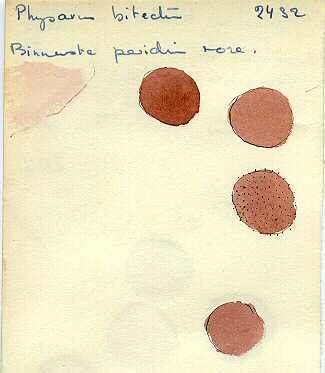 Physarum bitectum 2432
Binnenste peridie roze.